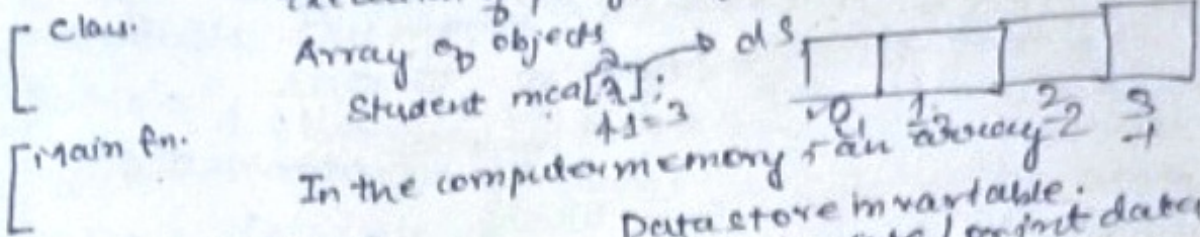 [ Class.
Array of objects → ds
Student mca[2];
+1=3
0 1 2 3
[ Main fn.
In the computer memory, an array
Data store in variable.